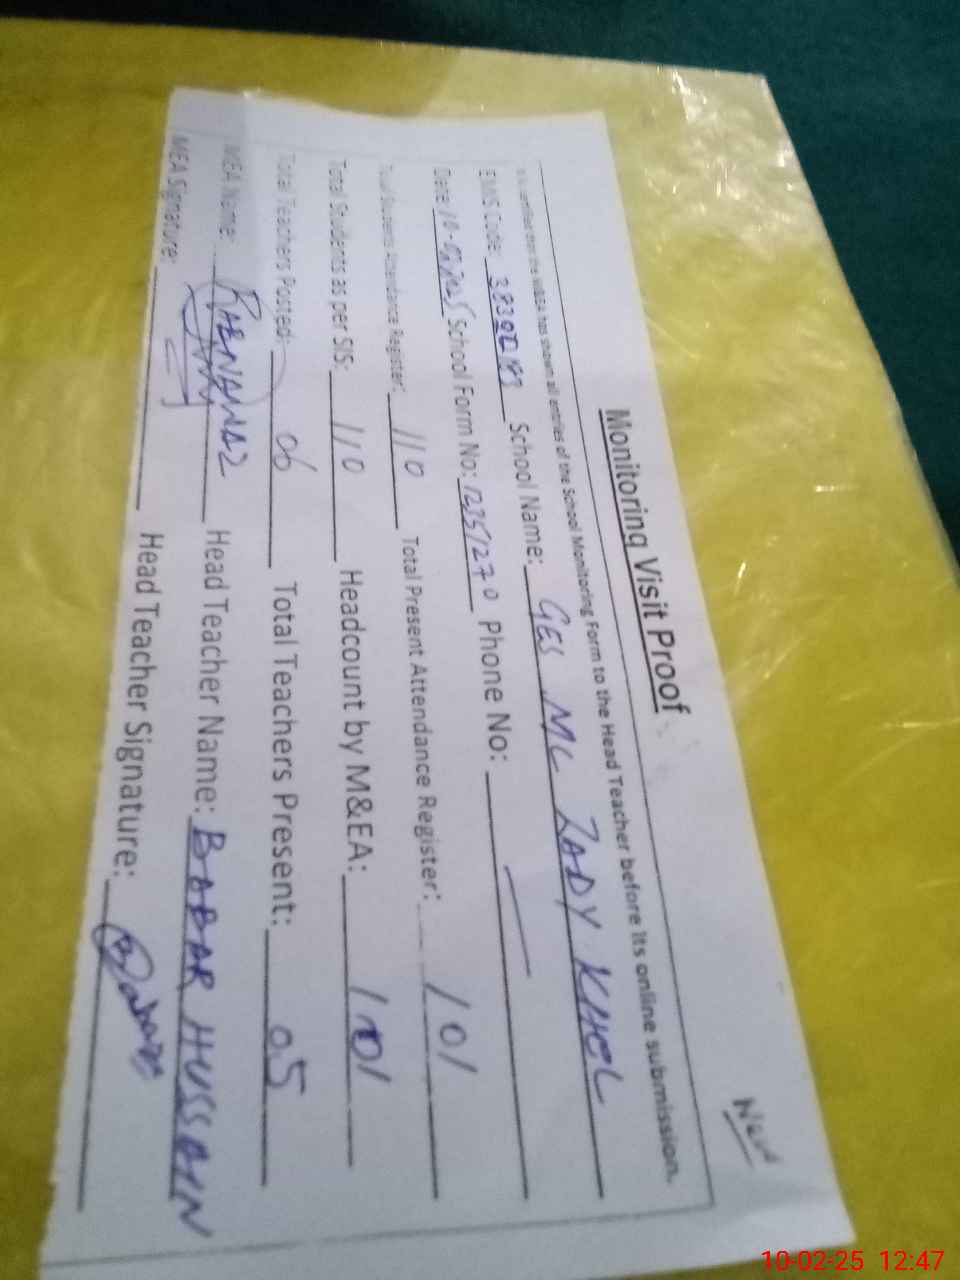 New
Monitoring Visit Proof
It is certified that the M&EA has shown all entries of the School Monitoring Form to the Head Teacher before its online submission.
EMIS Code: School Name: GES MC ZADY KHEL
Date: School Form No: 12357270 Phone No: —
Total Students Attendance Register: 110 Total Present Attendance Register: 101
Total Students as per SIS: 110 Headcount by M&EA: 101
Total Teachers Posted: 06 Total Teachers Present: 05
MEA Name: Head Teacher Name: BABAR HUSSAIN
MEA Signature: Head Teacher Signature:
10-02-25 12:47